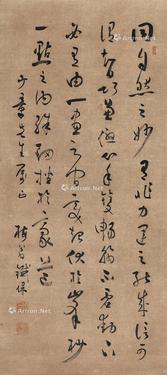 同自然之妙有非力運之能成信可
謂智巧兼優心手雙暢翰不虛動下
必有由一畫之間變起伏於峯杪
一點之內殊衄挫於豪芒
先生屬正 鐵保